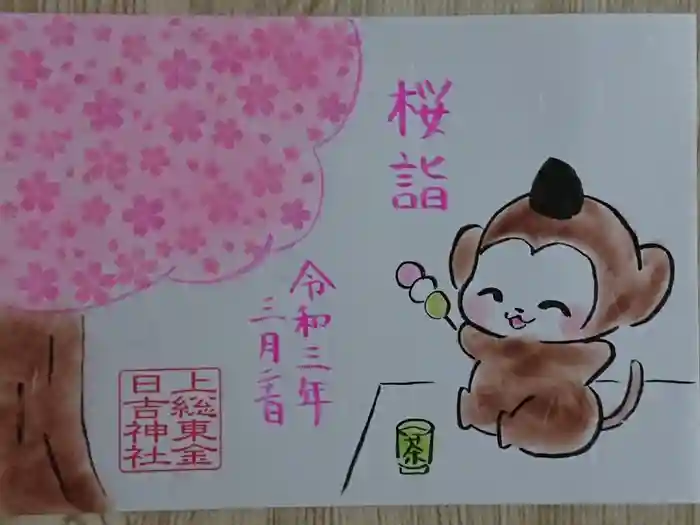 桜詣
令和三年
三月
上総東金
日吉神社
茶